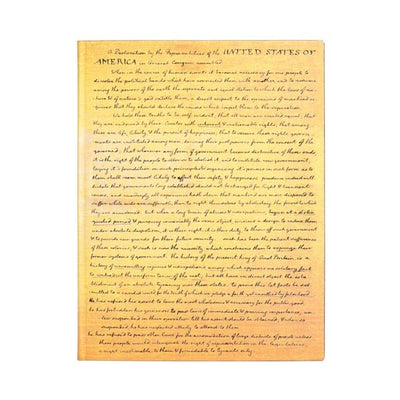 A Declaration by the Representatives of the UNITED STATES OF
AMERICA in General Congress assembled
When in the course of human events it becomes necessary for one people to
dissolve the political bands which have connected them with another, and to
among the powers of the earth the separate and equal station to which the laws of na-
ture & of nature's god entitle them, a decent respect to the opinions of mankind re-
quires that they should declare the causes which impel them to the separation.
We hold these truths to be self evident; that all men are created equal; that
they are endowed by their Creator with inherent & unalienable rights; that among
these are life, liberty & the pursuit of happiness; that to secure these rights, govern-
ments are instituted among men, deriving their just powers from the consent of the
governed; that whenever any form of government becomes destructive of these ends,
it is the right of the people to alter or to abolish it, and to institute new government,
laying it's foundation on such principles & organising it's powers in such form, as to
them shall seem most likely to effect their safety & happiness. prudence indeed will
dictate that governments long established should not be changed for light & transient
causes. and accordingly all experience hath shewn that mankind are more disposed to
suffer while evils are sufferable, than to right themselves by abolishing the forms to which
they are accustomed. but when a long train of abuses & usurpations, begun at a distin-
guished period & pursuing invariably the same object, evinces a design to reduce them
under absolute despotism, it is their right, it is their duty, to throw off such government
& to provide new guards for their future security. such has been the patient sufferance
of these colonies, & such is now the necessity which constrains them to expunge their
former systems of government. the history of the present king of Great Britain, is a
history of unremitting injuries & usurpations, among which appears no solitary fact
to contradict the uniform tenor of the rest, but all have in direct object the esta-
blishment of an absolute tyranny over these states. to prove this let facts be sub-
mitted to a candid world for the truth of which we pledge a faith yet unsullied by falsehood.
He has refused his assent to laws the most wholesome & necessary for the public good.
he has forbidden his governors to pass laws of immediate & pressing importance, un-
less suspended in their operation till his assent should be obtained, & when so
suspended, he has neglected utterly to attend to them
he has refused to pass other laws for the accommodation of large districts of people unless
those people would relinquish the right of representation in the legislature,
a right inestimable to them & formidable to tyrants only.